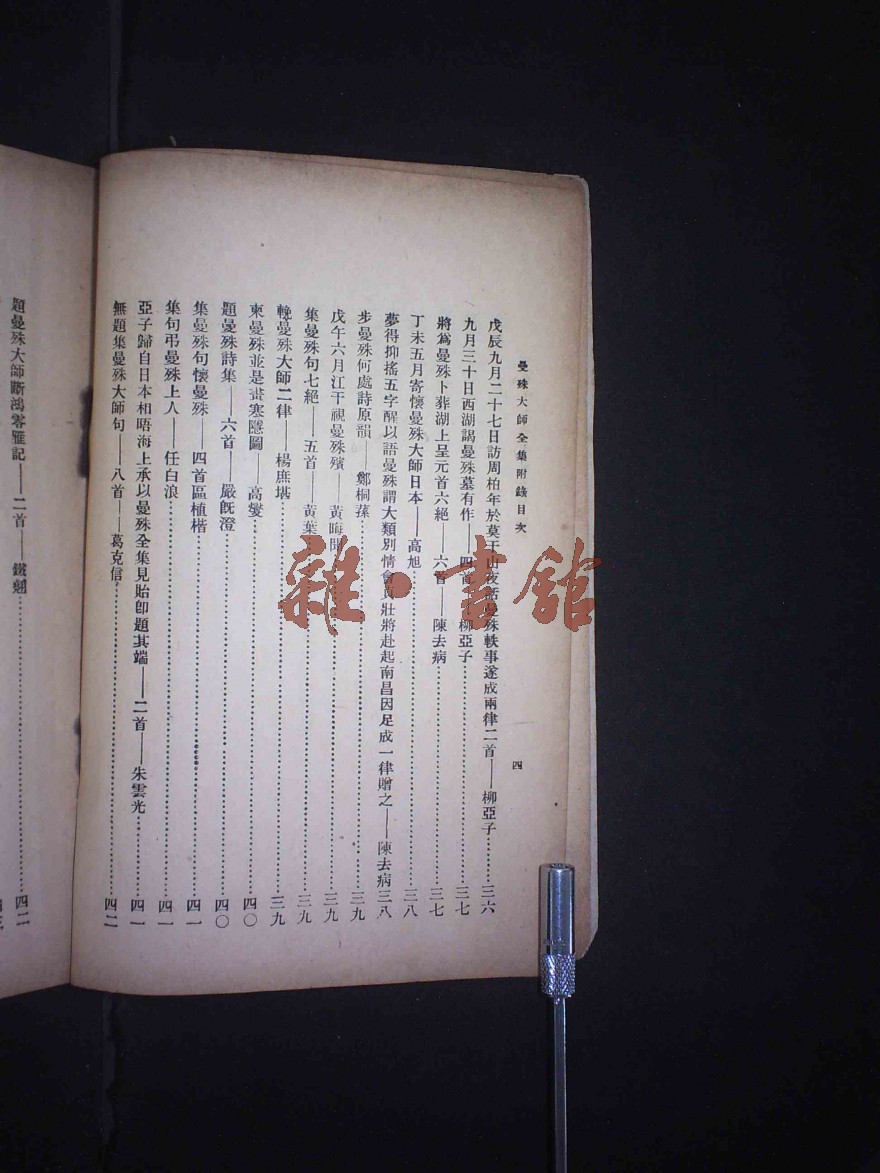 曼殊大師全集附錄目次
四
戊辰九月二十七日訪周柏年於莫干山夜話曼殊軼事遂成兩律二首——柳亞子………三六
九月三十日西湖謁曼殊墓有作——四首——柳亞子………三七
將爲曼殊卜葬湖上呈元首六絕——六首——陳去病………三七
丁未五月寄懷曼殊大師日本——高旭………三八
夢得抑搖五字醒以語曼殊謂大類別情會貞壯將赴起南昌因足成一律贈之——陳去病三八
步曼殊何處詩原韻——鄭桐蓀………三九
戊午六月江干視曼殊殯——黃晦聞………三九
集曼殊句七絕——五首——黃葉………三九
輓曼殊大師二律——楊庶堪………三九
柬曼殊並是畫寒隱圖——高燮………四〇
題曼殊詩集——六首——嚴旣澄………四〇
集曼殊句懷曼殊——四首區植楷………四一
集句弔曼殊上人——任白浪………四一
亞子歸自日本相晤海上承以曼殊全集見貽卽題其端——二首——朱雲光………四一
無題集曼殊大師句——八首——葛克信………四二
題曼殊大師斷鴻零雁記——二首——鐵翹………四二
雜·書館